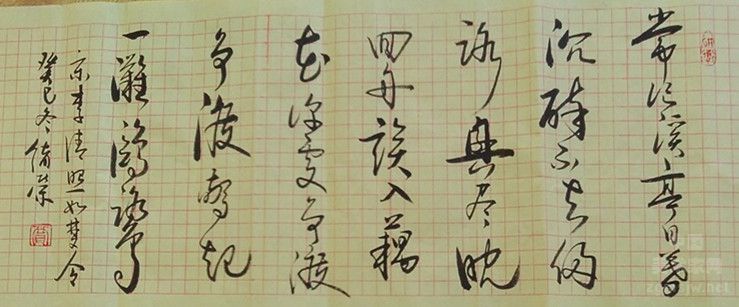 常记溪亭日暮
沉醉不知归
路興尽晚
回舟误入藕
花深处争渡
争渡惊起
一灘鷗鷺
宋李清照如梦令
癸巳冬